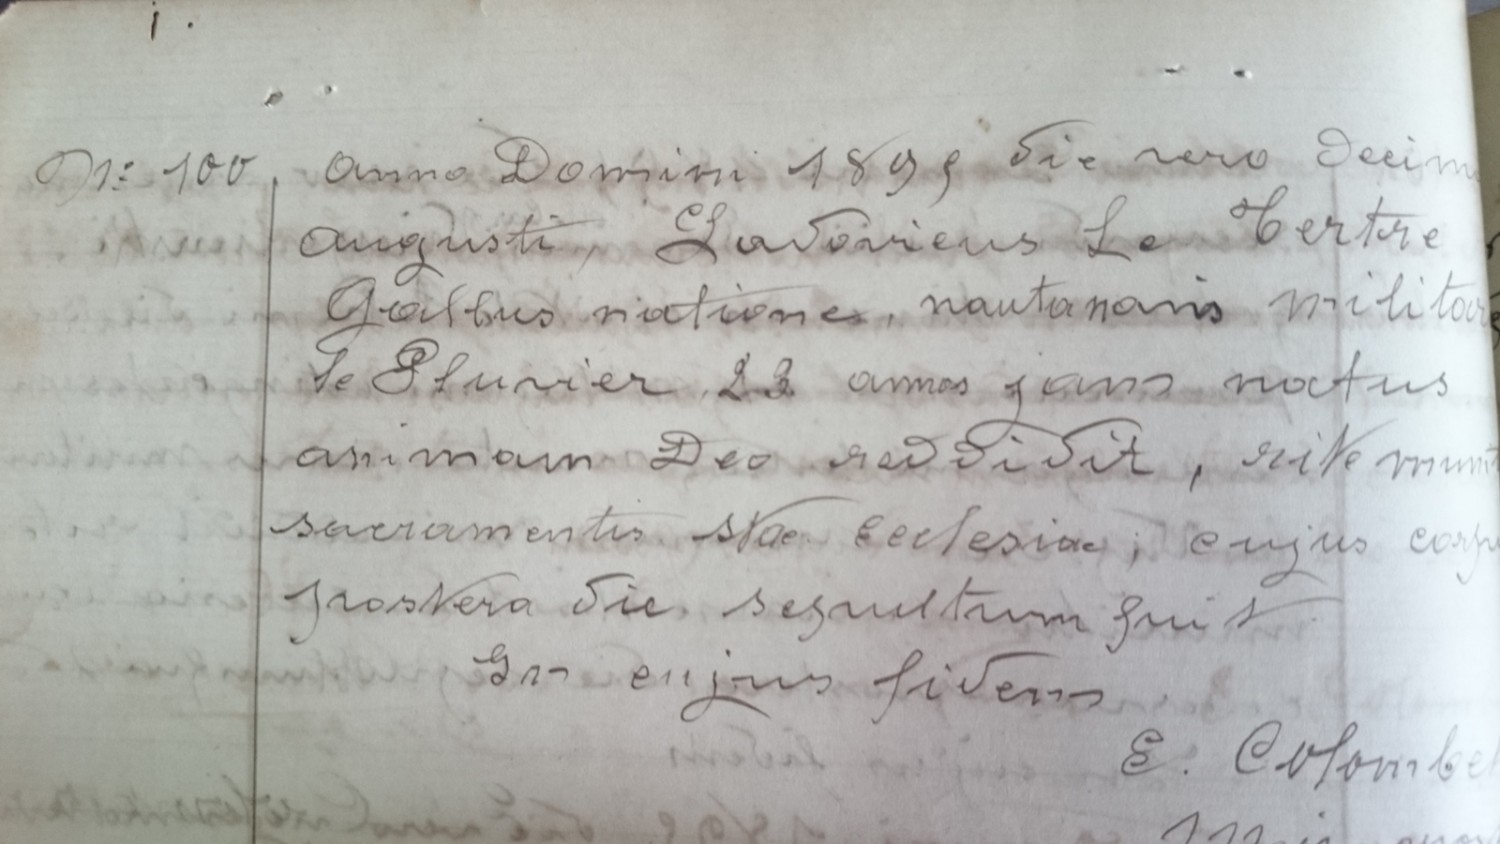 N: 100. Anno Domini 1895 die vero decim
augusti, Ludovicus Le Tertre
Gallus natione, nauta navis militar
le Pluvier 22 annos jam natus
animam Deo reddidit, rite munit
sacramentis Stae Ecclesiae; cujus corp
postera die sepultum fuit
In cujus fidem
E. Colombe